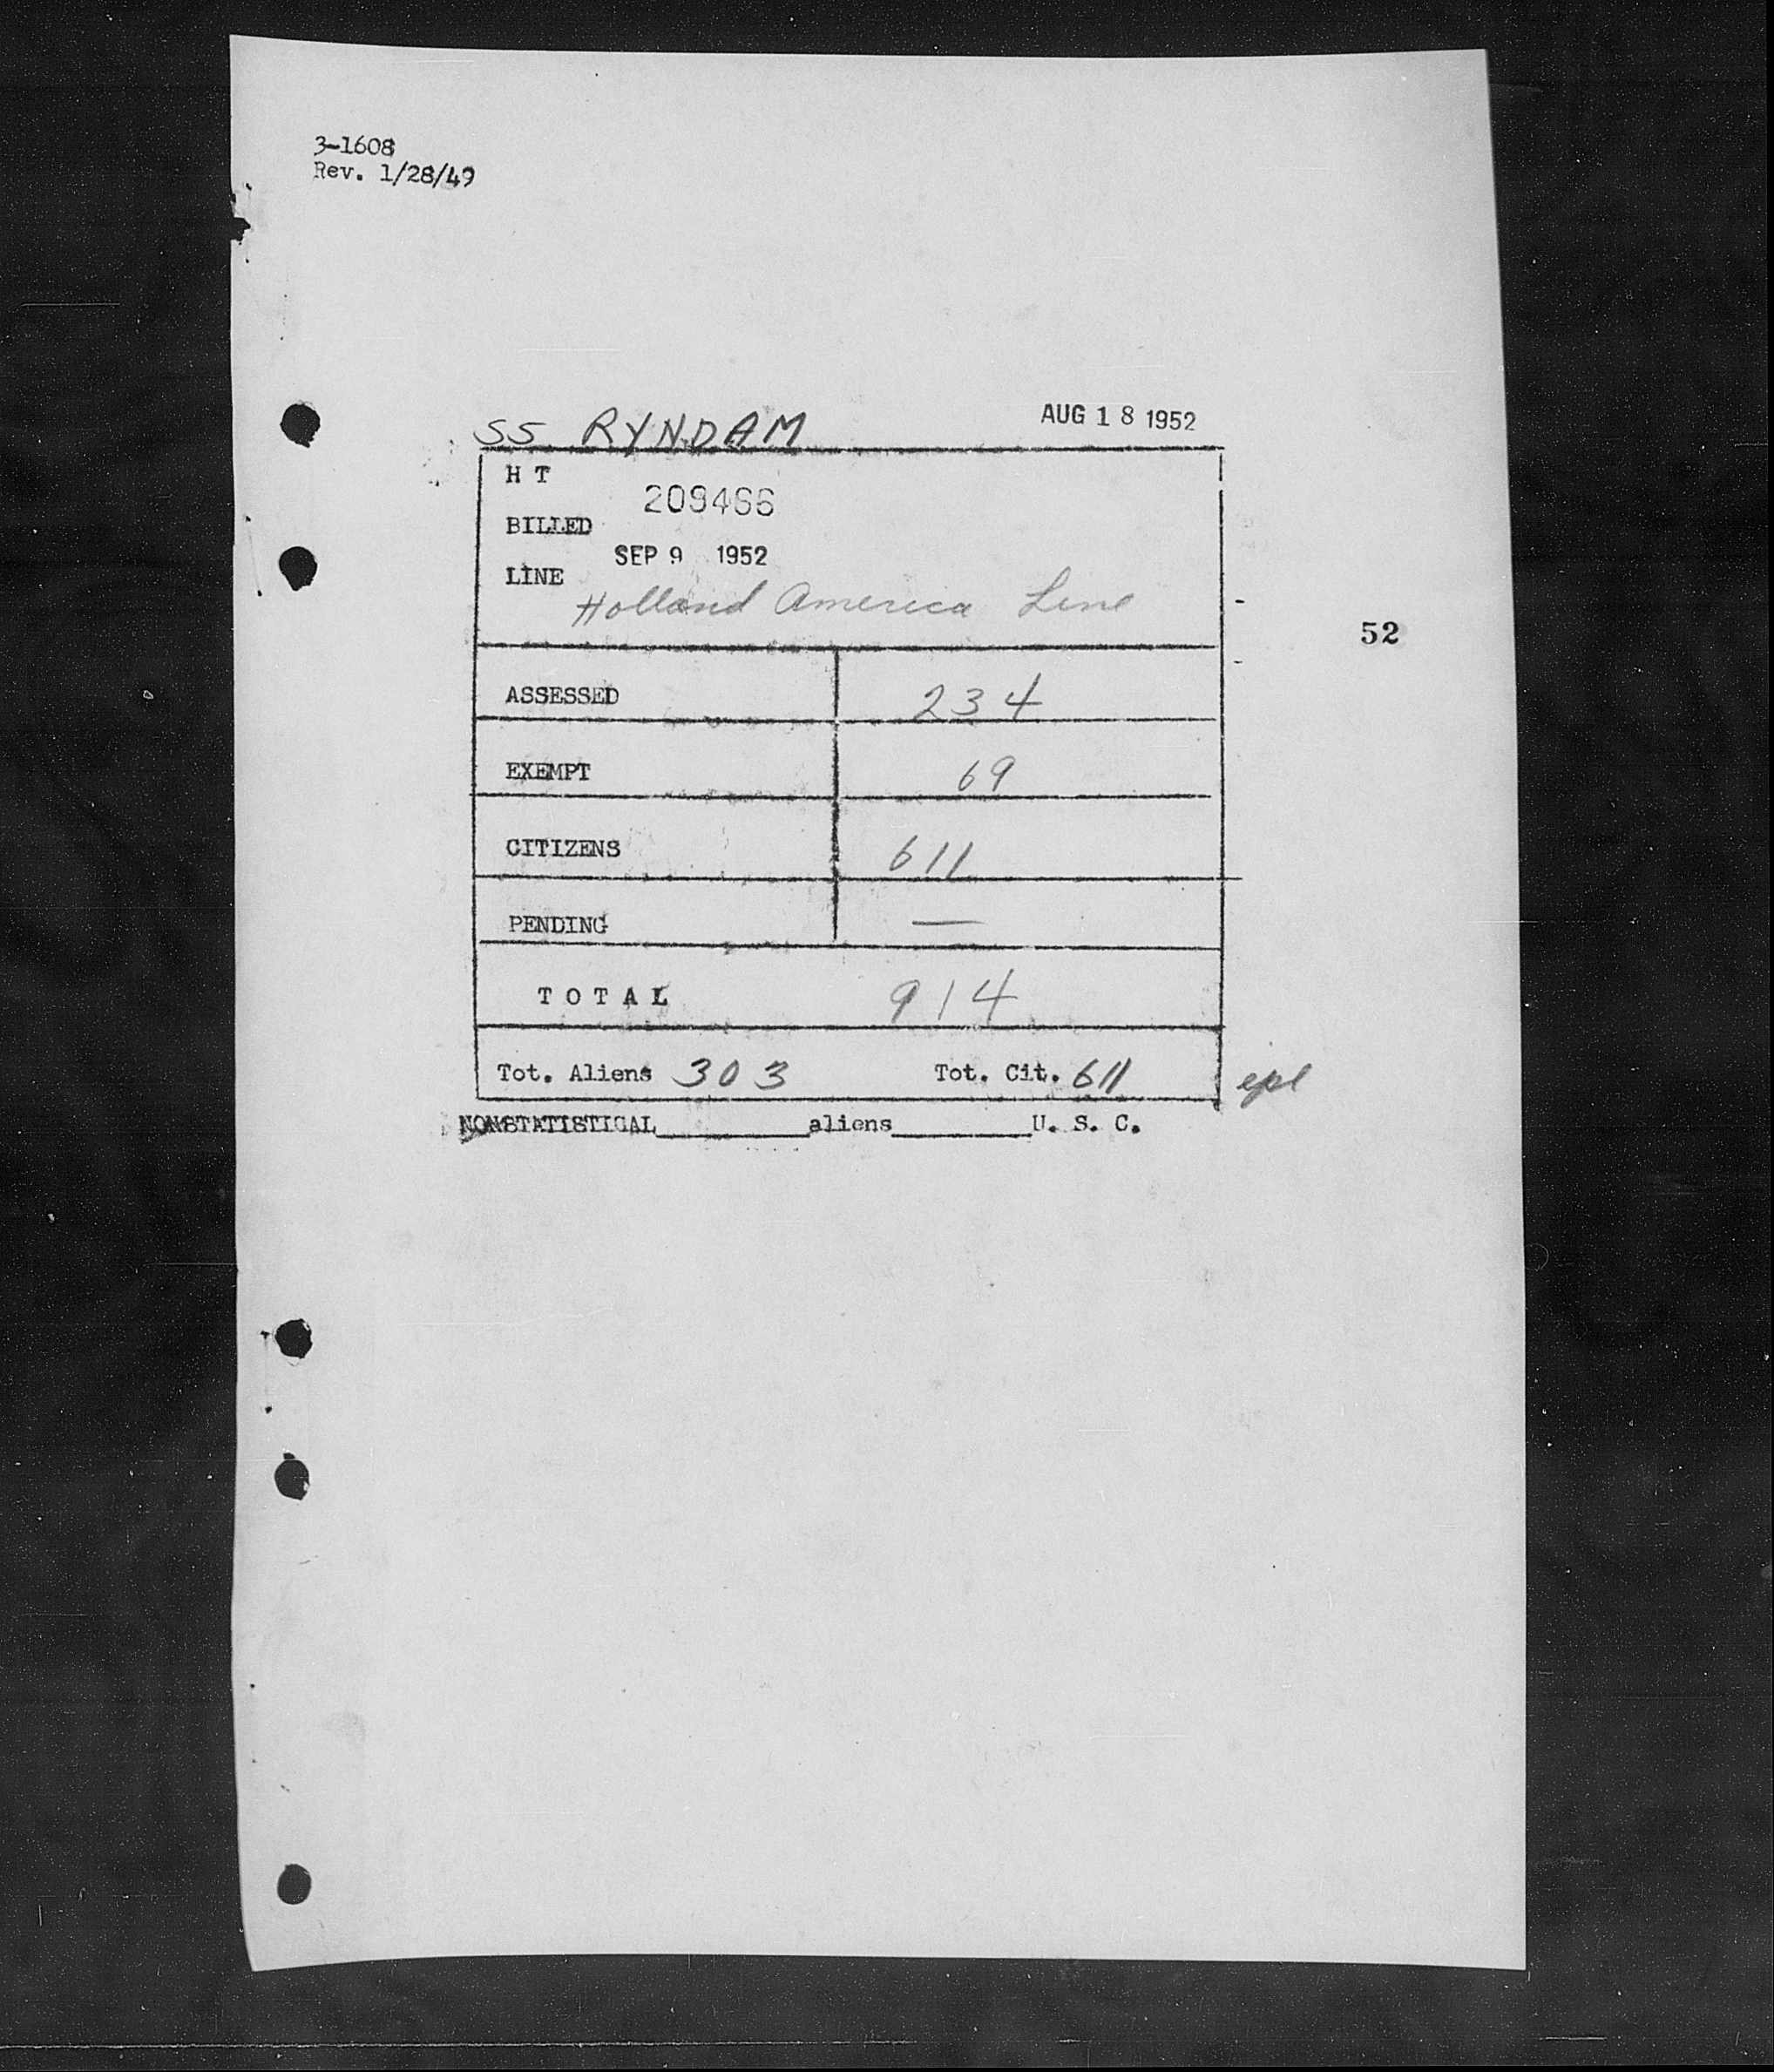 3-1608
Rev. 1/28/49
SS RYNDAM AUG 18 1952
H T
209466
BILLED
SEP 9 1952
LINE
Holland America Line
52
ASSESSED 234
EXEMPT 69
CITIZENS 611
PENDING —
TOTAL 914
Tot. Aliens 303 Tot. Cit. 611
NONSTATISTICAL__________aliens__________U. S. C.